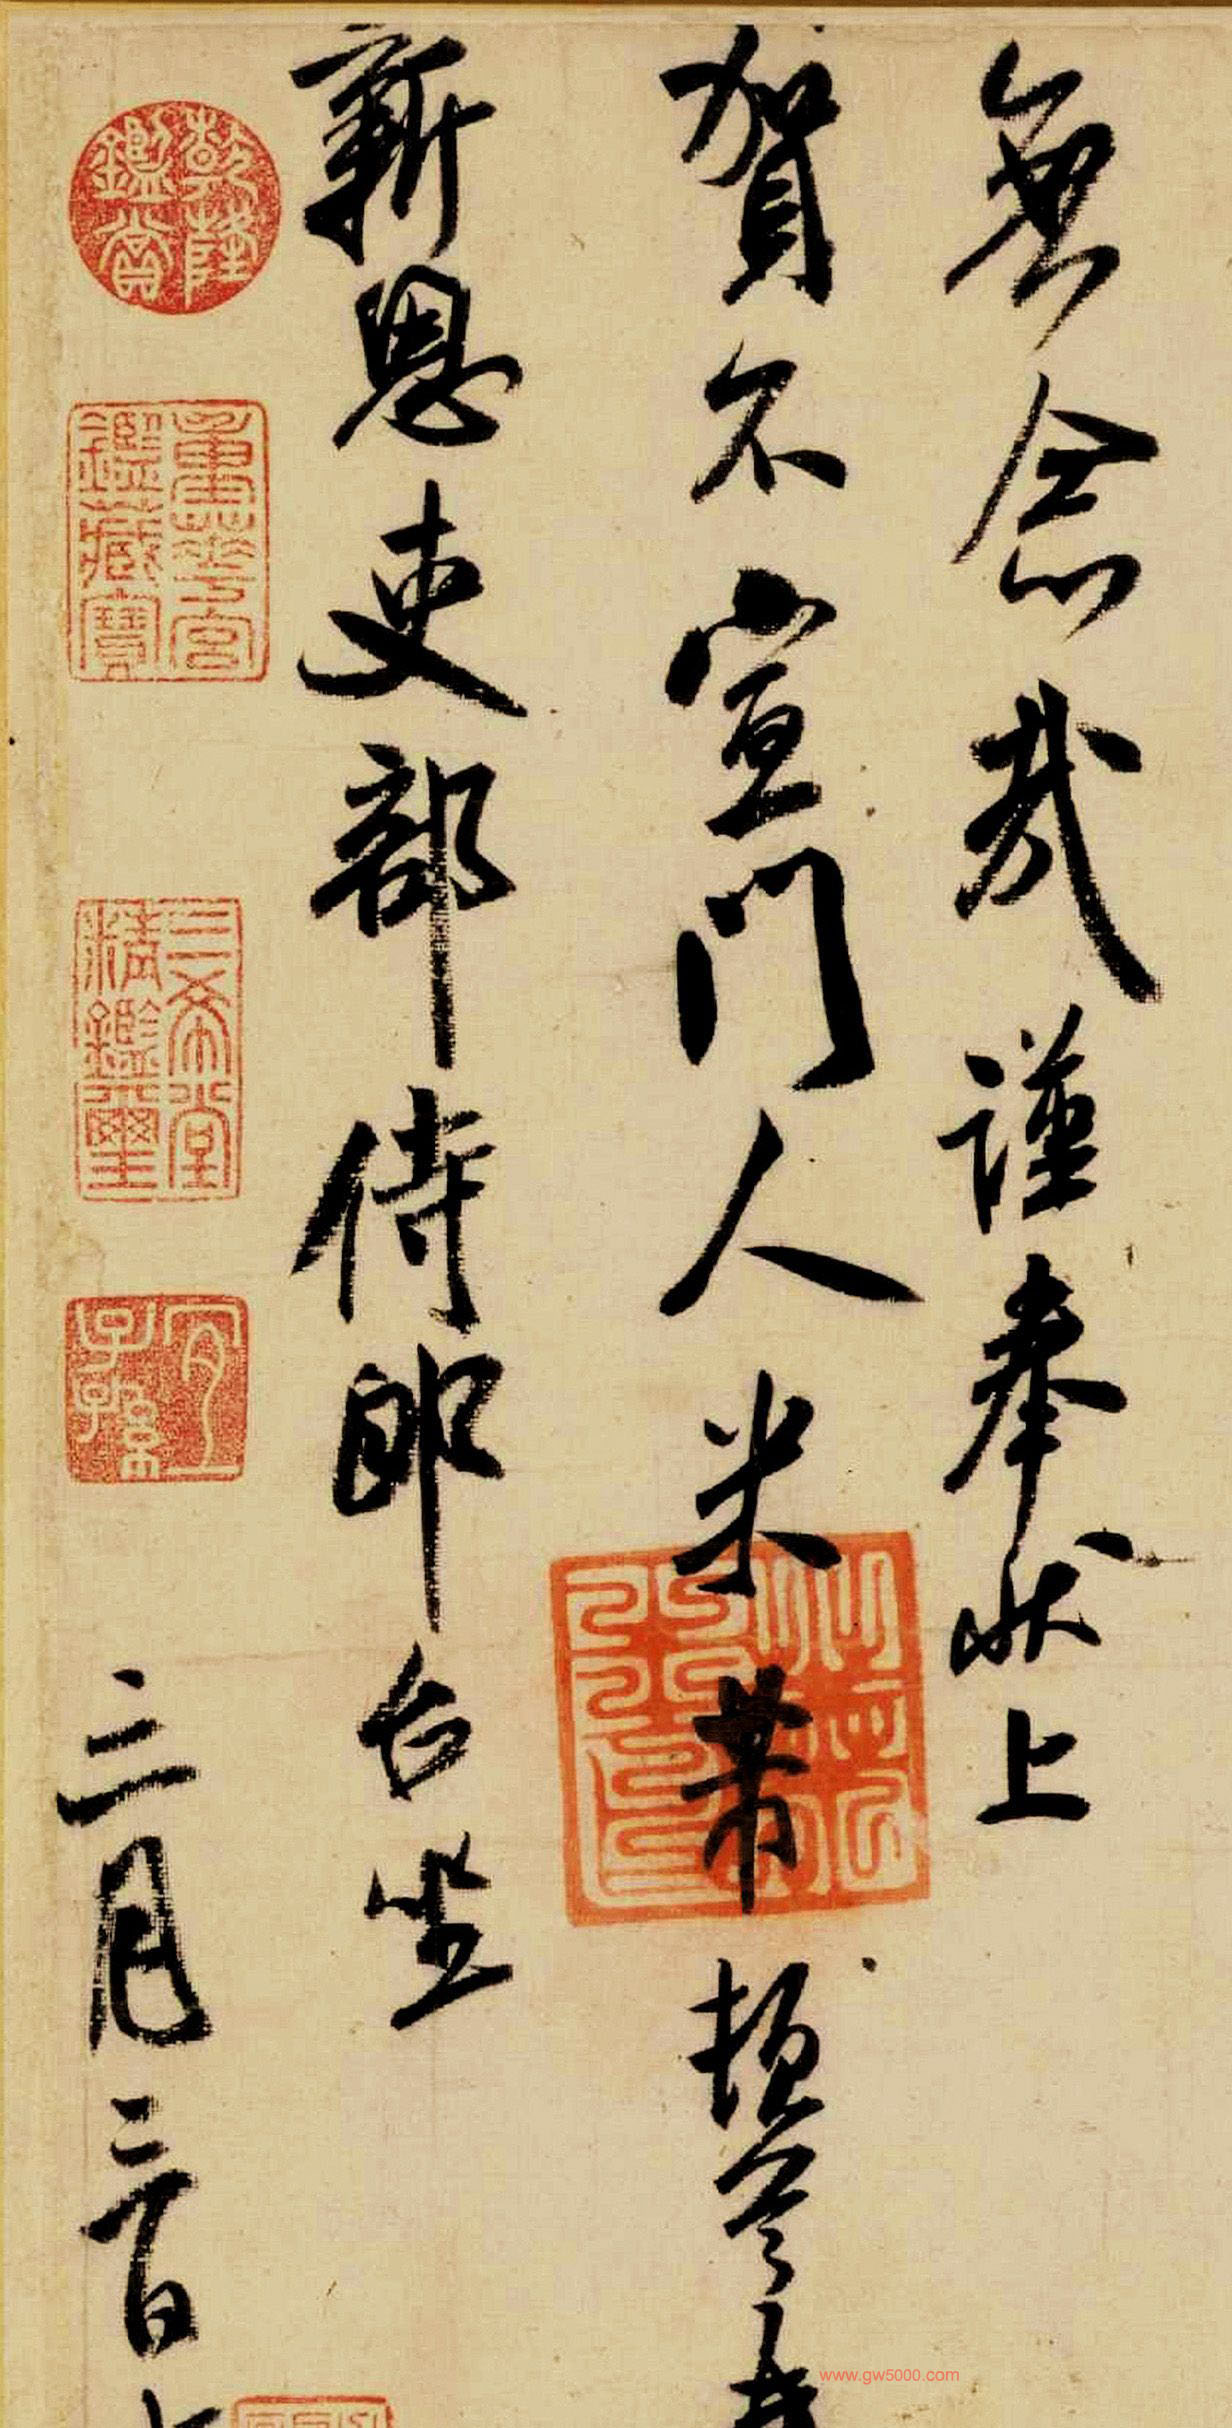 無念哉謹奉狀上
賀不宣門人米芾頓首
新恩吏部侍郎台坐
三月三日
乾隆鑑賞
重華宮鑑藏寶
三希堂精鑑璽
宜子孫
www.gw5000.com